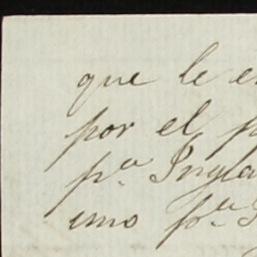 que le e
por el p
pª Ingla
imo pº.ª